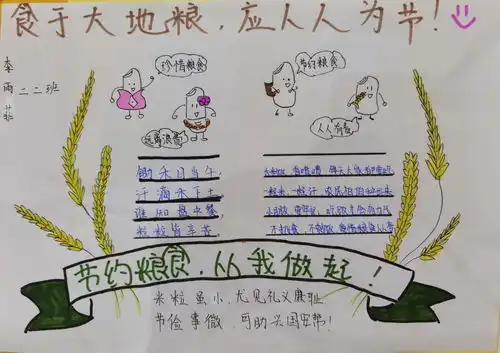 食于大地粮，应人人为节！
李雨菲
二二班
珍惜粮食
节约粮食
远离浪费
人人有责
锄禾日当午，
汗滴禾下土，
谁知盘中餐，
粒粒皆辛苦。
节约粮食，从我做起！
米粒虽小，尤见礼义廉耻
节俭事微，可助兴国安邦！